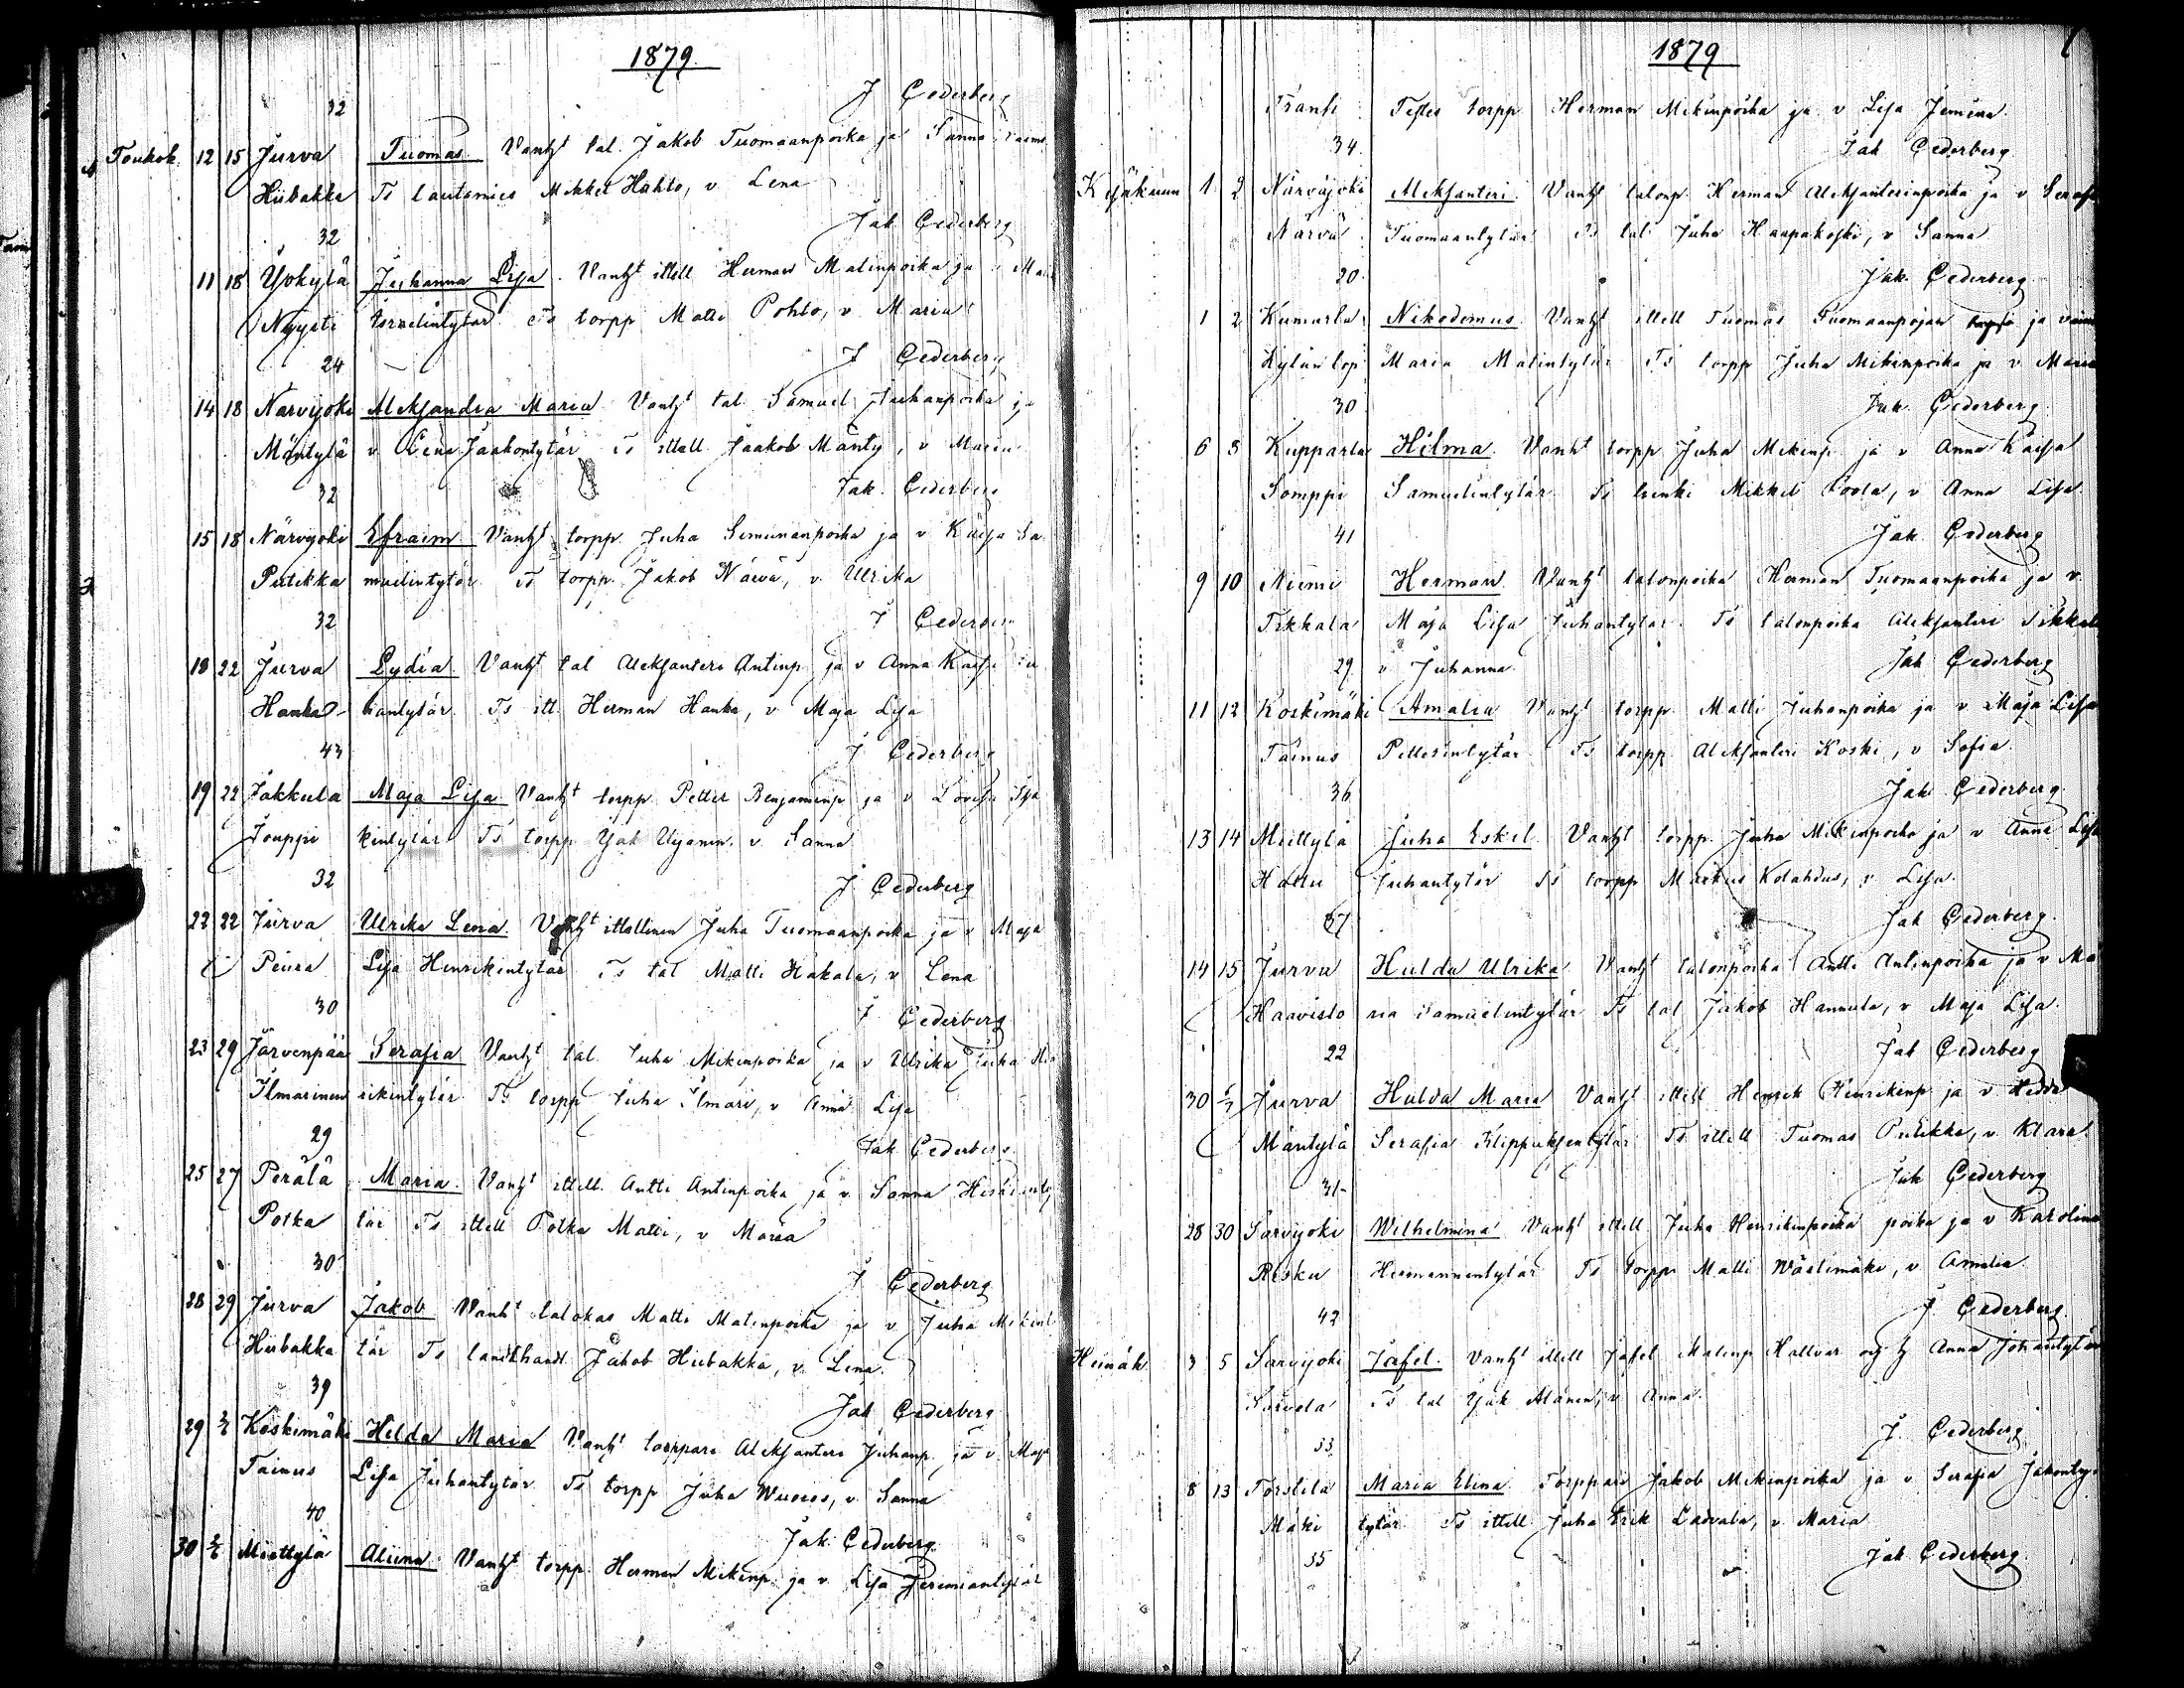 1879
J Cederberg
32
Toukok. 12 15 Jurva Tuomas Vanht tal. Jakob Tuomaanpoika ja Sanna
Hiibakka Ts lautamies Mikkel Hahto, v Lena
Jak Cederberg
32
11 18 Yökylä Juhanna Lisa. Vanht ittell Herman Matinpoika ja
Nyysti Israelintytär Ts torpp Matti Pohto, v Maria
J Cederberg
24
14 18 Närvijoki Aleksandra Maria Vanht tal Samuel Juhanpoika ja
Mäntylä v Lena Jaakontytär Ts ittell Jaakob Mänty, v Maria
Jak. Cederberg
32
15 18 Närvijoki Efraim Vanht torpp Juha Simunanpoika ja v Kaisa Sa
Putikka muelintytär Ts torpp Jakob Närvä, v. Ulrika
J Cederberg
32
18 22 Jurva Lydia Vanht tal Aleksanteri Antinp ja v Anna Kaisa Ju
Hanka hantytär Ts itt Herman Hanka, v Maja Lisa
J Cederberg
43
19 22 Jakkula Maja Lisa Vanht torpp Petter Benjaminp ja v Lovisa Isa
Jouppi kintytär Ts torpp Isak v Sanna
J Cederberg
32
22 22 Jurva Ulrika Lena Vanht ittellinen Juha Tuomaanpoika ja v Maja
Peura Lisa Henrikintytär Ts tal Matti Hakala, v Lena
J Cederberg
30
23 29 Järvenpää Serafia Vanht tal. Juha Mikinpoika ja v Ulrika
Ilmarinen rikintytär Ts torpp Juha Ilmari, v Anna Lisa
Jak Cederberg
29
25 27 Perälä Maria. Vanht ittell. Antti Antinpoika ja v Sanna
Potka tär Ts ittell Potka Matti, v Maria
J Cederberg
30
28 29 Jurva Jakob Vanht talokas Matti Matinpoika ja v Juha
Hiibakka tär Ts landthandl Jakob Hiibakka, v Lena
Jak Cederberg
39
29 2/6 Koskimäki Hilda Maria Vanht torppari Aleksanteri Juhanp ja v Maja
Tainus Lisa Juhantytär Ts torpp Juha Wuores, v Sanna
Jak. Cederberg
40
30 2/6 Miettylä Aliina Vanht torpp Herman Mikinp ja v Lisa Jeremiantytär
1879
Transi Testes torpp Herman Mikinpoika ja v Lisa
34. Jak Cederberg
Kesäkuun 1 2 Närvijoki Aleksanteri Vanht talonp Herman Aleksanterinpoika ja v Serafia
Närvä Tuomaantytär Ts tal Juha Haapakoski, v Sanna
20. Jak. Cederberg
1 2 Kumarla Nikodemus Vanht ittell Tuomas Tuomaanpojan ja vaimo
Kylänlop Maria Matintytär Ts torpp Juha Mikinpoika ja v Maria
30 Jak. Cederberg
6 8 Kupparla Hilma Vanht torpp Juha Mikinp ja v Anna Kaisa
Somppi Samuelintytär Ts Mikkel v Anna Lisa
41 Jak. Cederberg
9 10 Niemi Herman Vanht talonpoika Herman Tuomaanpoika ja v
Tikkala Maja Lisa Juhantytär Ts talonpoika Aleksanteri Tikkala
29 v Juhanna Jak Cederberg
11 12 Koskimäki Amalia Vanht torpp. Matti Juhanpoika ja v Maja Lisa
Tainus Petterintytär Ts torpp Aleksanteri Koski, v Sofia
36 Jak Cederberg
13 14 Miettylä Juha Eskil Vanht torpp Juha Mikinpoika ja v Anna Lisa
Hattu Juhantytär Ts torpp Markus Kolahdus, v Lisa
37 Jak Cederberg
14 15 Jurva Hulda Ulrika Vanht talonpoika Antti Antinpoika ja v Ma
Haavisto ria Samuelintytär Ts tal Jakob Hannula, v Maja Lisa
22 Jak Cederberg
30 1/7 Jurva Hulda Maria Vanht ittell Henrik Henrikinp ja v Hedda
Mäntylä Serafia Ts ittell Tuomas Putikka, v Klara
31 Jak Cederberg
28 30 Sarvijoki Wilhelmina Vanht ittell Juha Henrikinpoika poika ja v Karolina
Risku Hermannintytär Ts torpp Matti Wästimäki, v Amalia
42 J Cederberg
Heinäk 3 5 Sarvijoki Jafel. Vanht ittell Jafel Matinp Hallvar Anna Johantytär
Sarvela Ts tal Isak Alanen, v Anna
33 J. Cederberg
8 13 Torstila Maria Elina Torppari Jakob Mikinpoika ja v Serafia Jakonty
Mäki tytär Ts ittell Juha Erik Ladvala, v Maria
35 Jak Cederberg